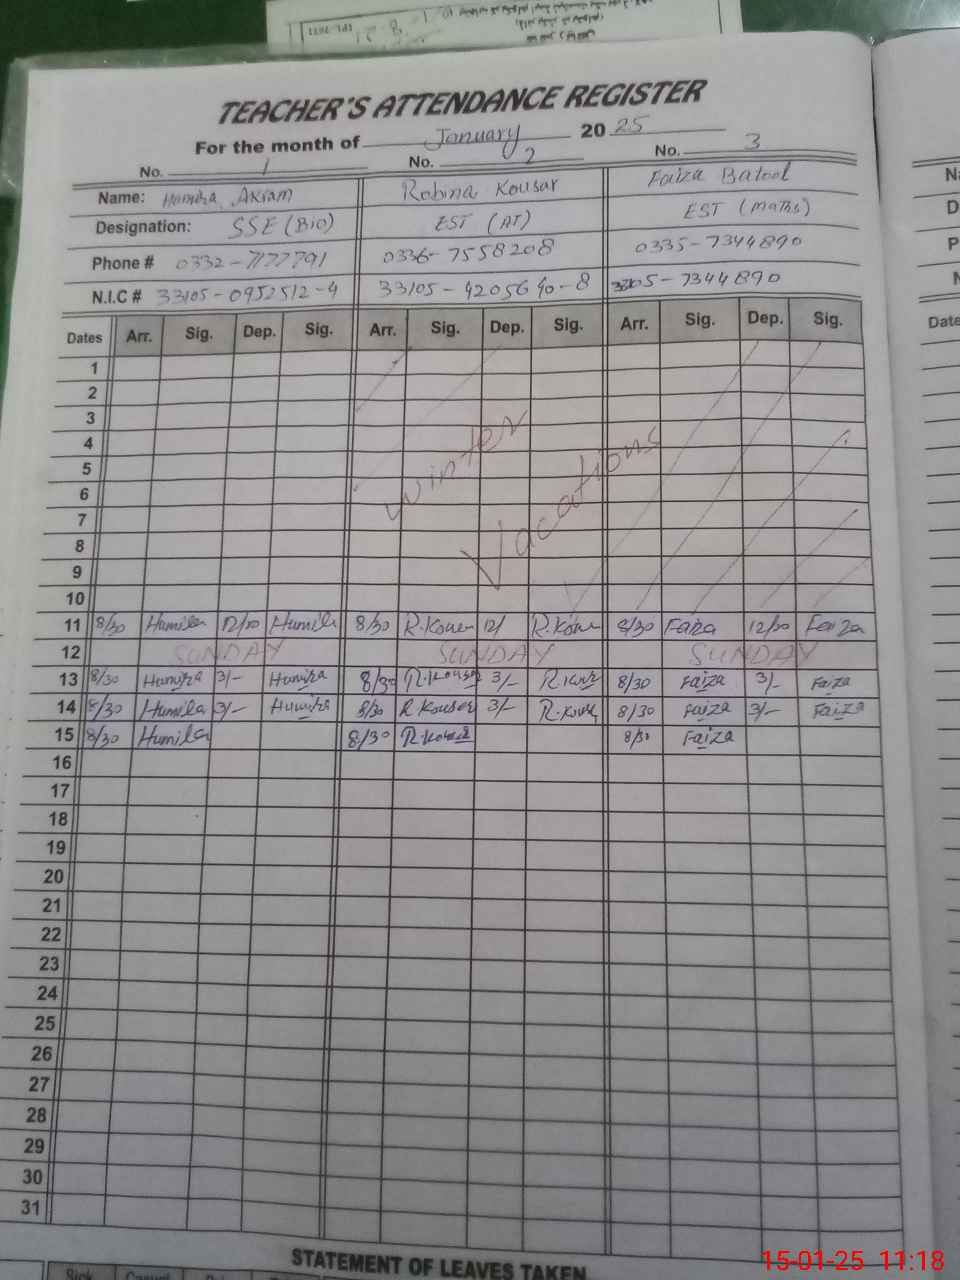 TEACHER'S ATTENDANCE REGISTER
For the month of January 2025
No. 1 No. 2 No. 3
Name: Humira Akram Robina Kousar Faiza Batool
Designation: SSE (Bio) EST (AT) EST (Maths)
Phone # 0332-7177791 0336-7558208 0335-7344890
N.I.C # 33105-0952512-4 33105-4205640-8 33105-7344890
Dates Arr. Sig. Dep. Sig. Arr. Sig. Dep. Sig. Arr. Sig. Dep. Sig.
1
2
3
4
Winter
5
Vacations
6
7
8
9
10
11 8/30 Humira 12/30 Humira 8/30 R.Kouser 12/ R.Kouser 8/30 Faiza 12/30 Faiza
12 SUNDAY SUNDAY SUNDAY
13 8/30 Humira 3/- Humira 8/30 R.Kousar 3/- R.Kousr 8/30 Faiza 3/- Faiza
14 8/30 Humira 3/- Humira 8/30 R Kouser 3/- R.Kousr 8/30 Faiza 3/- Faiza
15 8/30 Humira 8/30 R.Kousar 8/30 Faiza
16
17
18
19
20
21
22
23
24
25
26
27
28
29
30
31
STATEMENT OF LEAVES TAKEN
Sick Casual
15-01-25 11:18